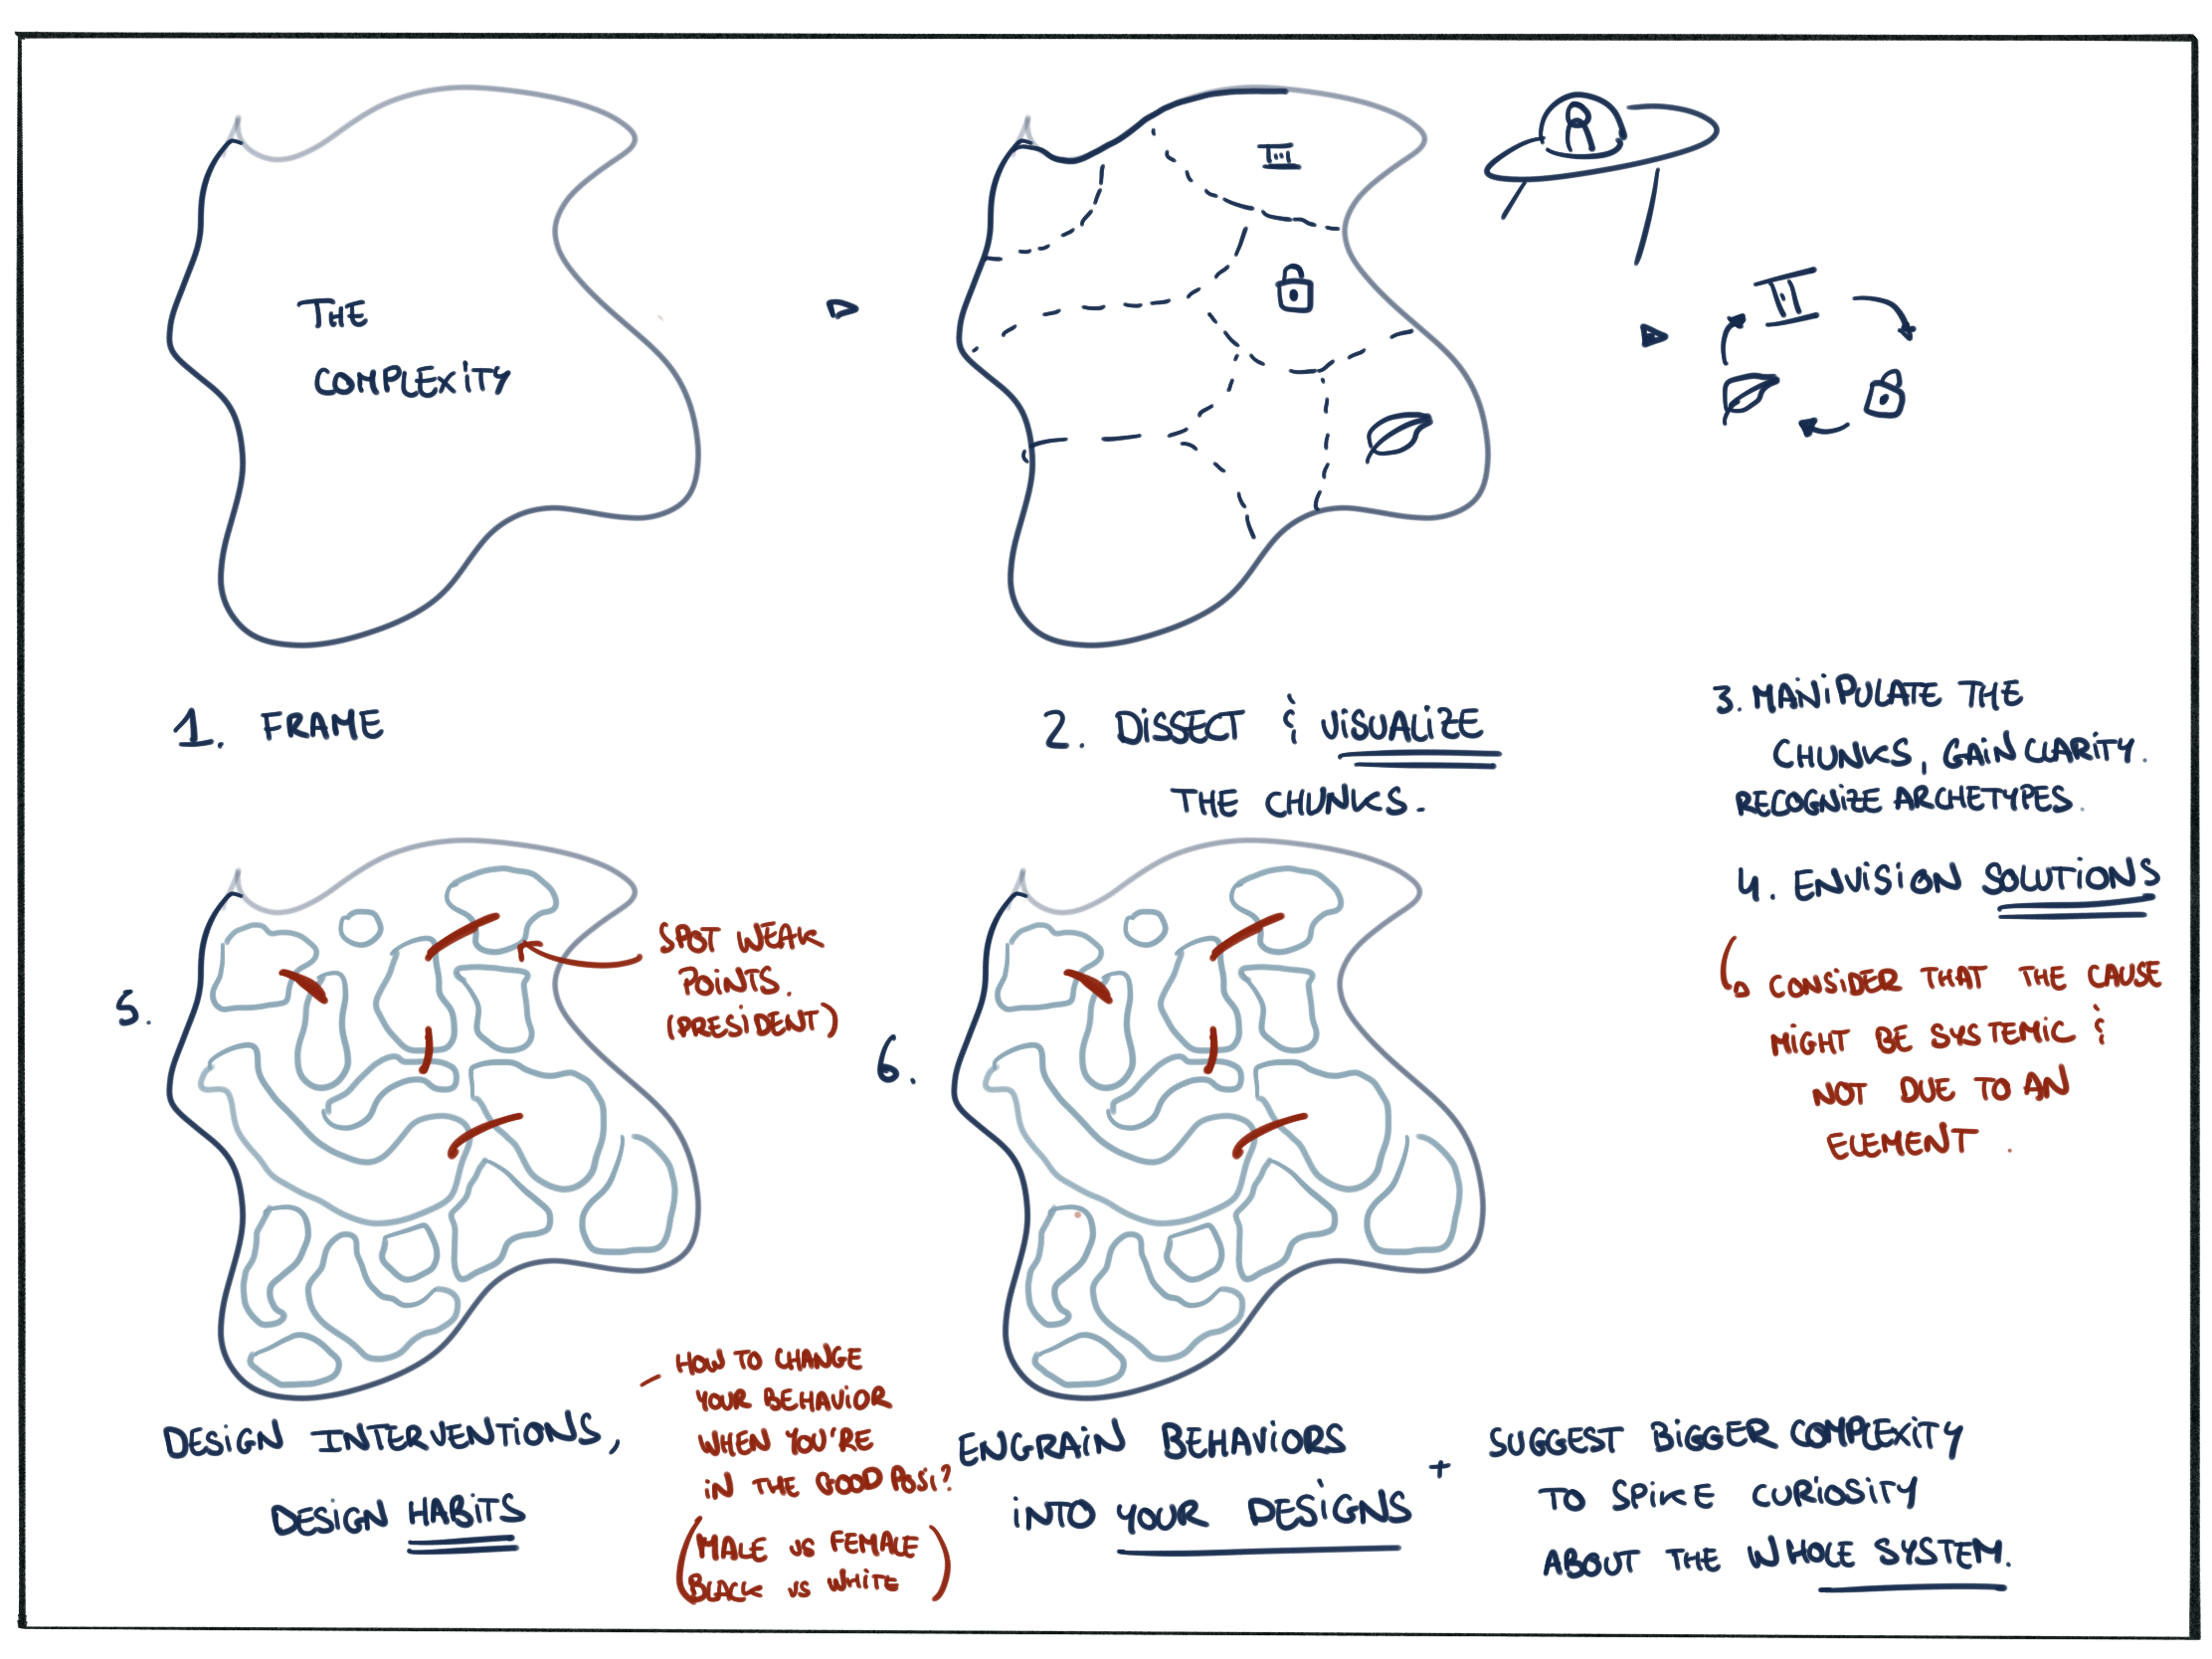 THE
COMPLEXITY
1. FRAME
2. DISSECT & VISUALIZE
THE CHUNKS.
3. MANIPULATE THE
CHUNKS, GAIN CLARITY.
RECOGNIZE ARCHETYPES.
4. ENVISION SOLUTIONS
CONSIDER THAT THE CAUSE
MIGHT BE SYSTEMIC &
NOT DUE TO AN
ELEMENT.
5.
SPOT WEAK
POINTS.
(PRESIDENT)
DESIGN INTERVENTIONS,
DESIGN HABITS
- HOW TO CHANGE
YOUR BEHAVIOR
WHEN YOU'RE
IN THE GOOD POSI?
(MALE VS FEMALE
BLACK VS WHITE)
6.
ENGRAIN BEHAVIORS
INTO YOUR DESIGNS
+ SUGGEST BIGGER COMPLEXITY
TO SPIKE CURIOSITY
ABOUT THE WHOLE SYSTEM.